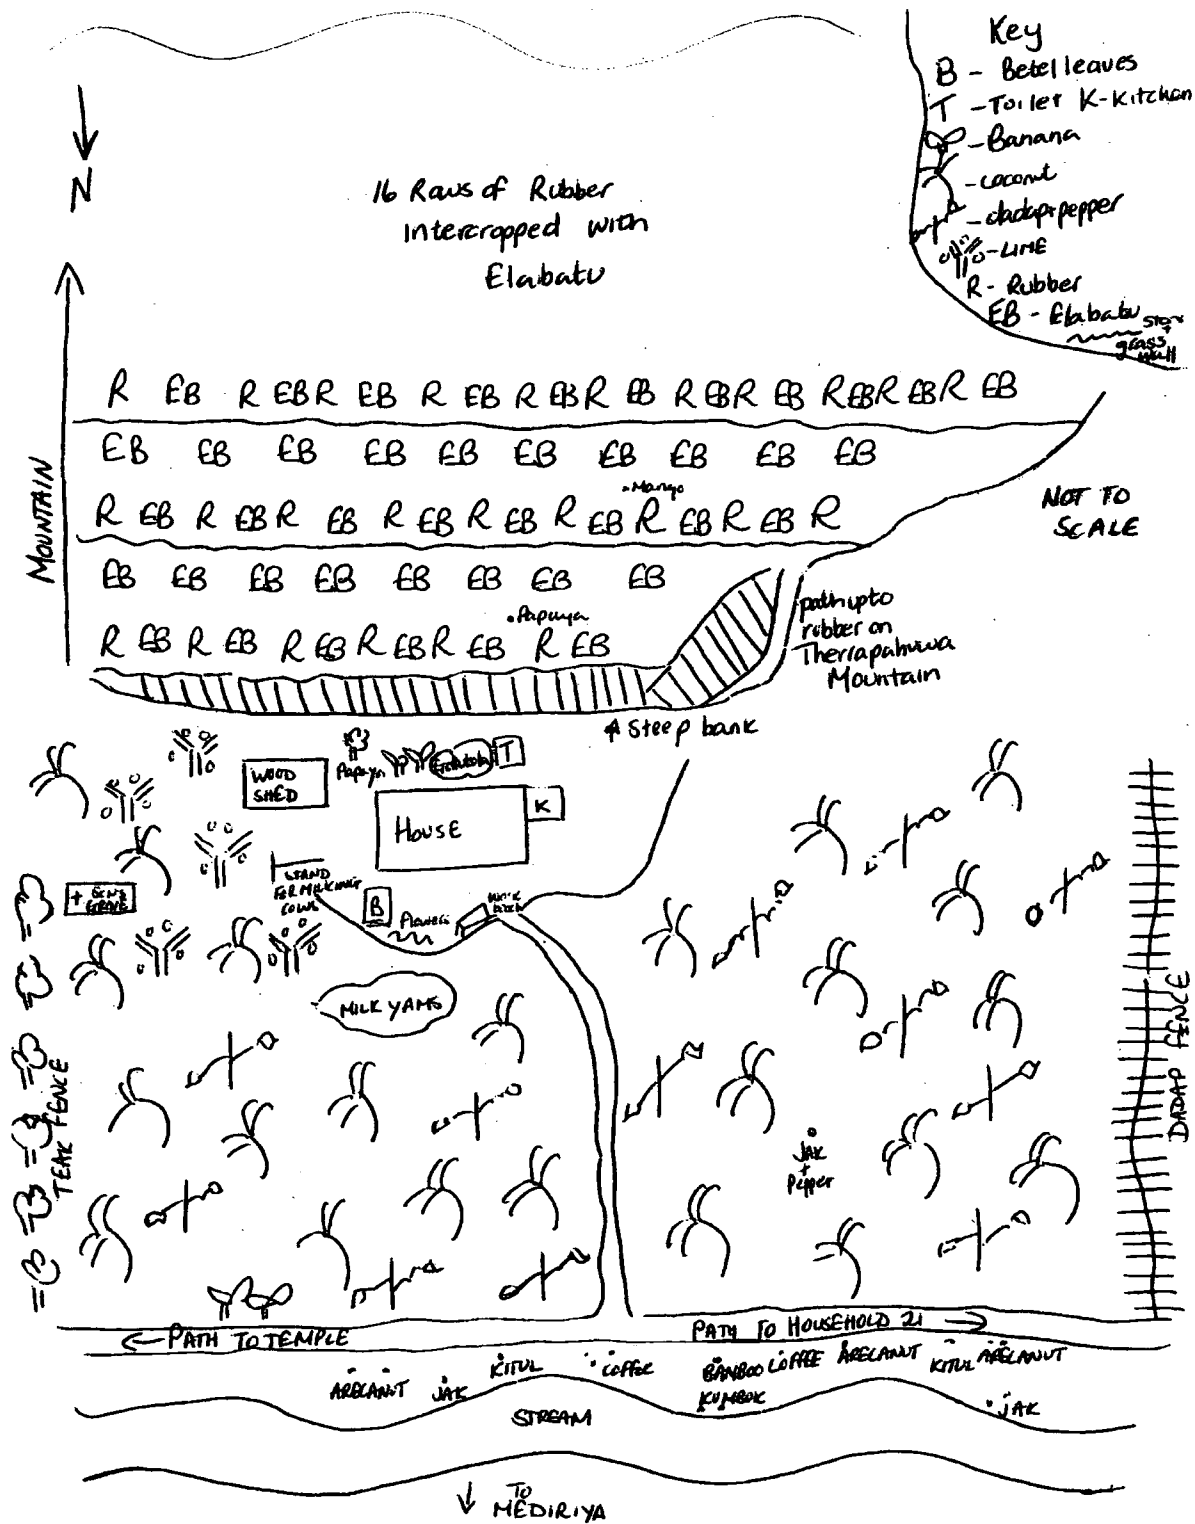 Key
B - Betel leaves
T - Toilet K-Kitchan
- Banana
- coconut
- dadap+pepper
- LIME
R - Rubber
EB - Elabatu
Stone +
grass
wall
N
16 Rows of Rubber
Intercropped with
Elabatu
MOUNTAIN
R EB R EB R EB R EB R EB R EB R EB R EB R EB R EB R EB
EB EB EB EB EB EB EB EB EB EB
.Mango
R EB R EB R EB R EB R EB R EB R EB R EB R
NOT TO
SCALE
EB EB EB EB EB EB EB EB
.Papaya
R EB R EB R EB R EB R EB R EB
path up to
rubber on
Therrapahuwa
Mountain
Steep bank
WOOD
SHED
Papaya
T
HOUSE
K
STAND
FOR MILKING
COWS
GRAVE
B
Flowers
MILK YAMS
TEAK FENCE
DADAP FENCE
JAK
+
Pepper
← PATH TO TEMPLE
PATH TO HOUSEHOLD 21 →
ARECANUT
JAK
KITUL
COFFEE
BAMBOO
KUMBOK
COFFEE
ARECANUT
KITUL
ARECANUT
JAK
STREAM
↓ TO
MEDIRIYA